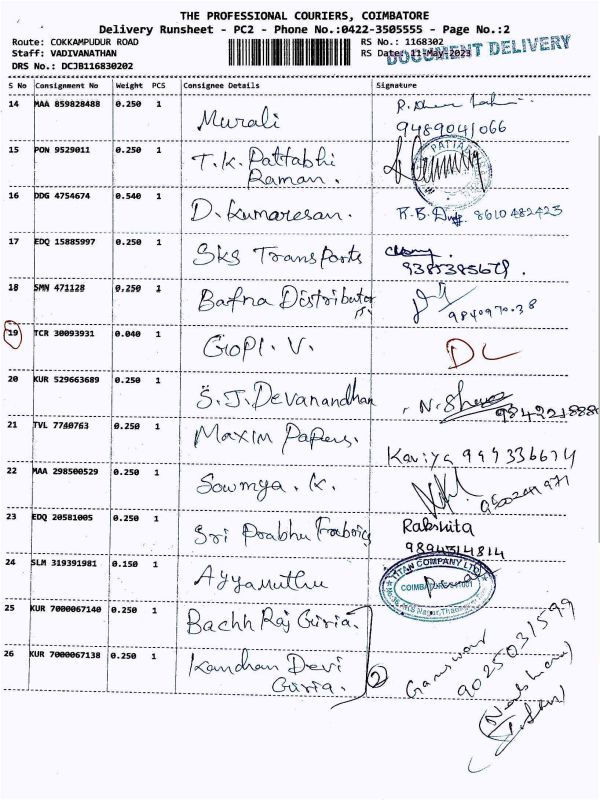 THE PROFESSIONAL COURIERS, COIMBATORE
Delivery Runsheet - PC2 - Phone No.:0422-3505555 - Page No.:2
Route: COKKAMPUDUR ROAD RS No.: 1168302
Staff: VADIVANATHAN RS Date: 11-May-2023
DOCUMENT DELIVERY
DRS No.: DCJB116830202
S No Consignment No Weight PCS Consignee Details Signature
14 MAA 859828488 0.250 1 Murali
9489041066
15 PON 9529011 0.250 1 T.K. Pattabhi
Raman.
16 DDG 4754674 0.540 1 D. Kumaresan. R.B. 8610482423
17 EDQ 15885997 0.250 1 SKS Transports
9385385679.
18 SMN 471128 0.250 1 Bafna Distributor
19 TCR 30093931 0.040 1 GOPI. V. DL
20 KUR 529663689 0.250 1 S.J. Devanandhan N.
21 TVL 7740763 0.250 1 Maxim Papers.
Kaviya
22 MAA 298500529 0.250 1 Sowmya. K.
23 EDQ 20581005 0.250 1 Sri Prabhu Fabrics Rakshita
9894314814
24 SLM 319391981 0.150 1 Ayyamuthu
TITAN COMPANY LTD
25 KUR 7000067140 0.250 1 Bachh Raj Giria.
26 KUR 7000067138 0.250 1 Kandhan Devi
Giria.
2
9025031599